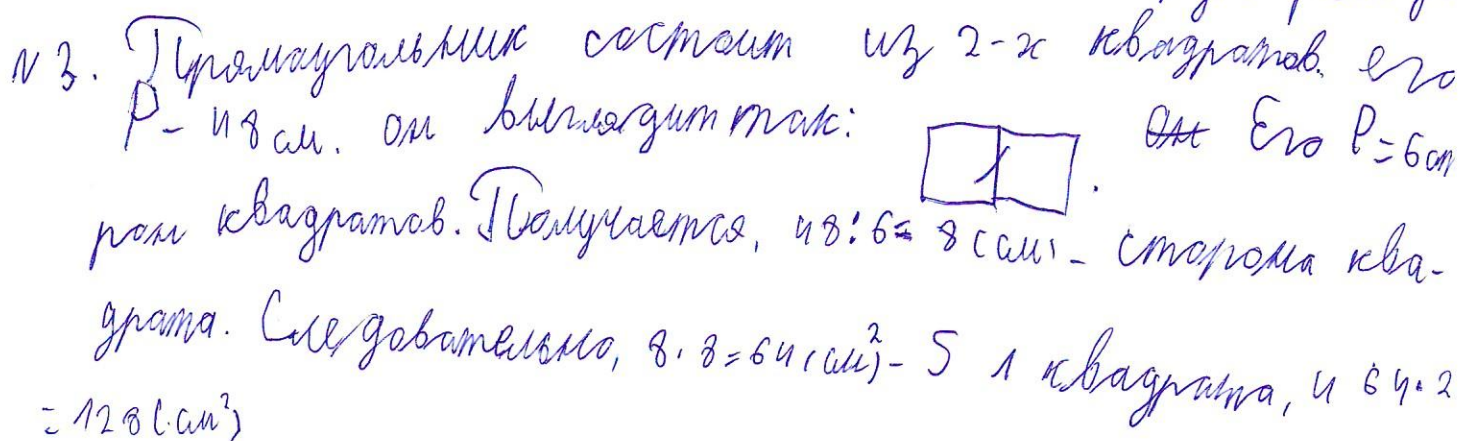 №3. Прямоугольник состоит из 2-х квадратов. его
P - 48 см. он выглядит так: Его P = 6 сто
рон квадратов. Получается, 48:6=8(см) - сторона ква-
драта. Следовательно, 8·8=64(см²) - S 1 квадрата, и 64·2
=128(см²)